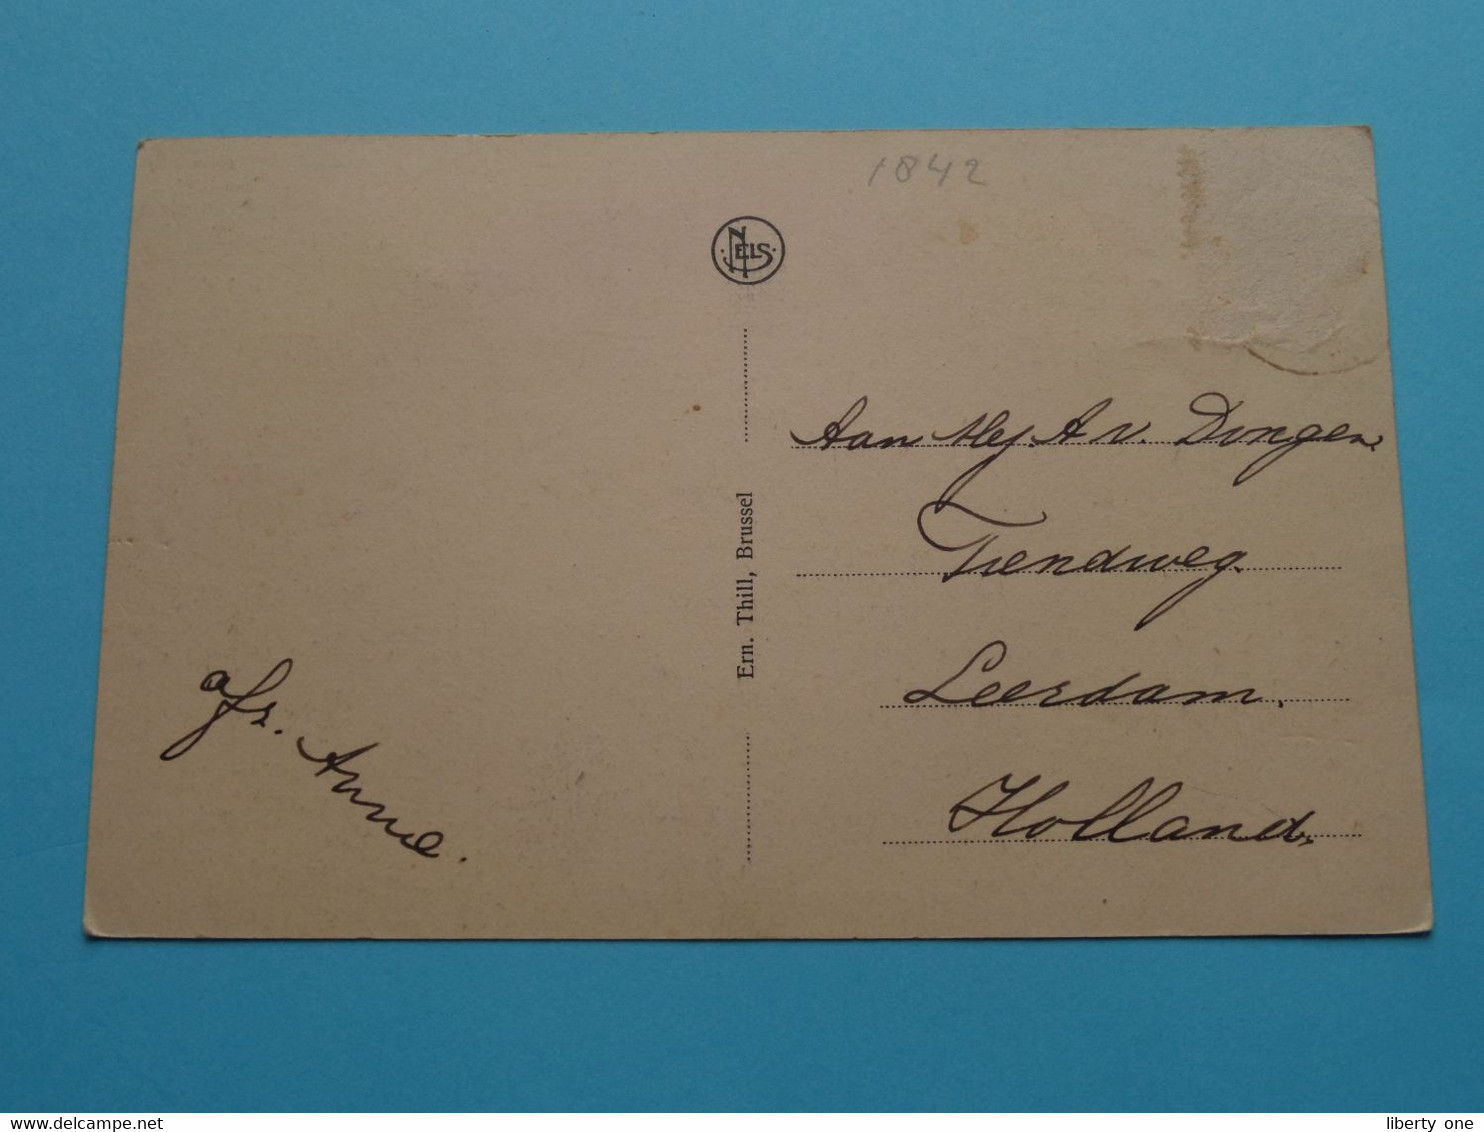 1842
NELS
Aan Mej. A v. Dongen.
Tiendweg.
Leerdam.
Holland.
Ern. Thill, Brussel
afz. Anne.
delcampe.net
liberty one